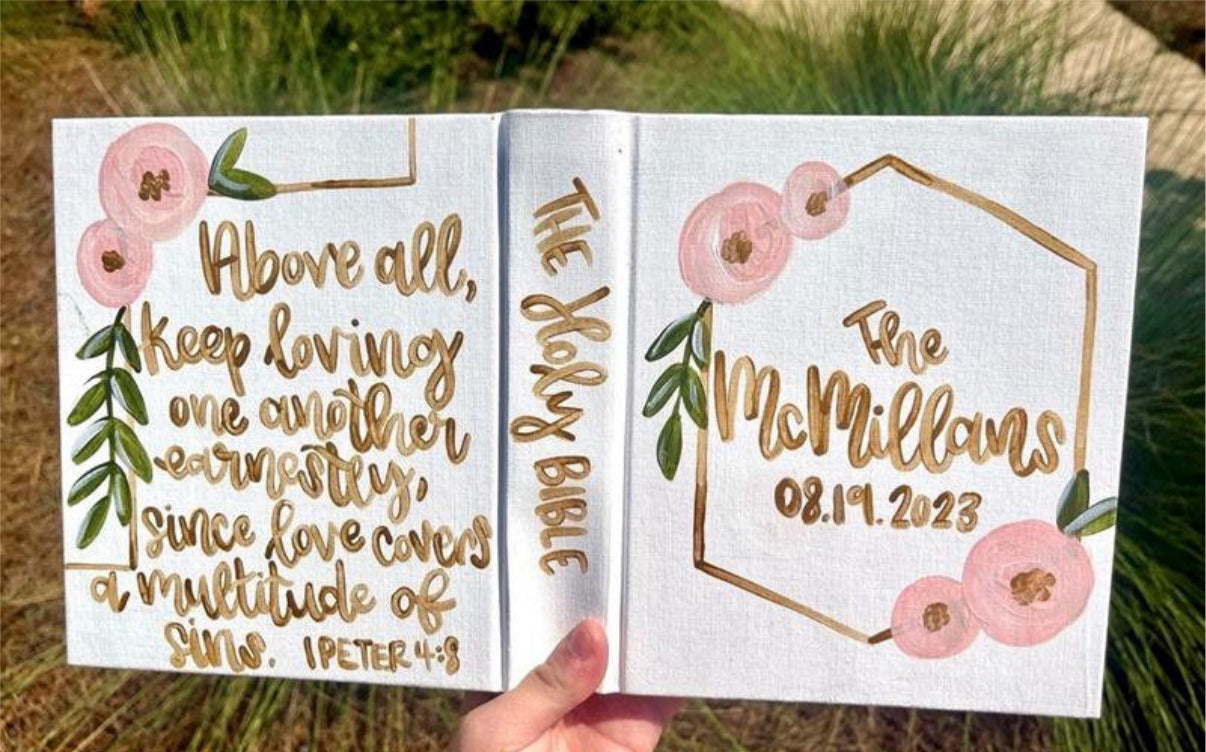 Above all,
keep loving
one another
earnestly,
since love covers
a multitude of
sins. 1 PETER 4:8
THE Holy BIBLE
The
McMillans
08.19.2023